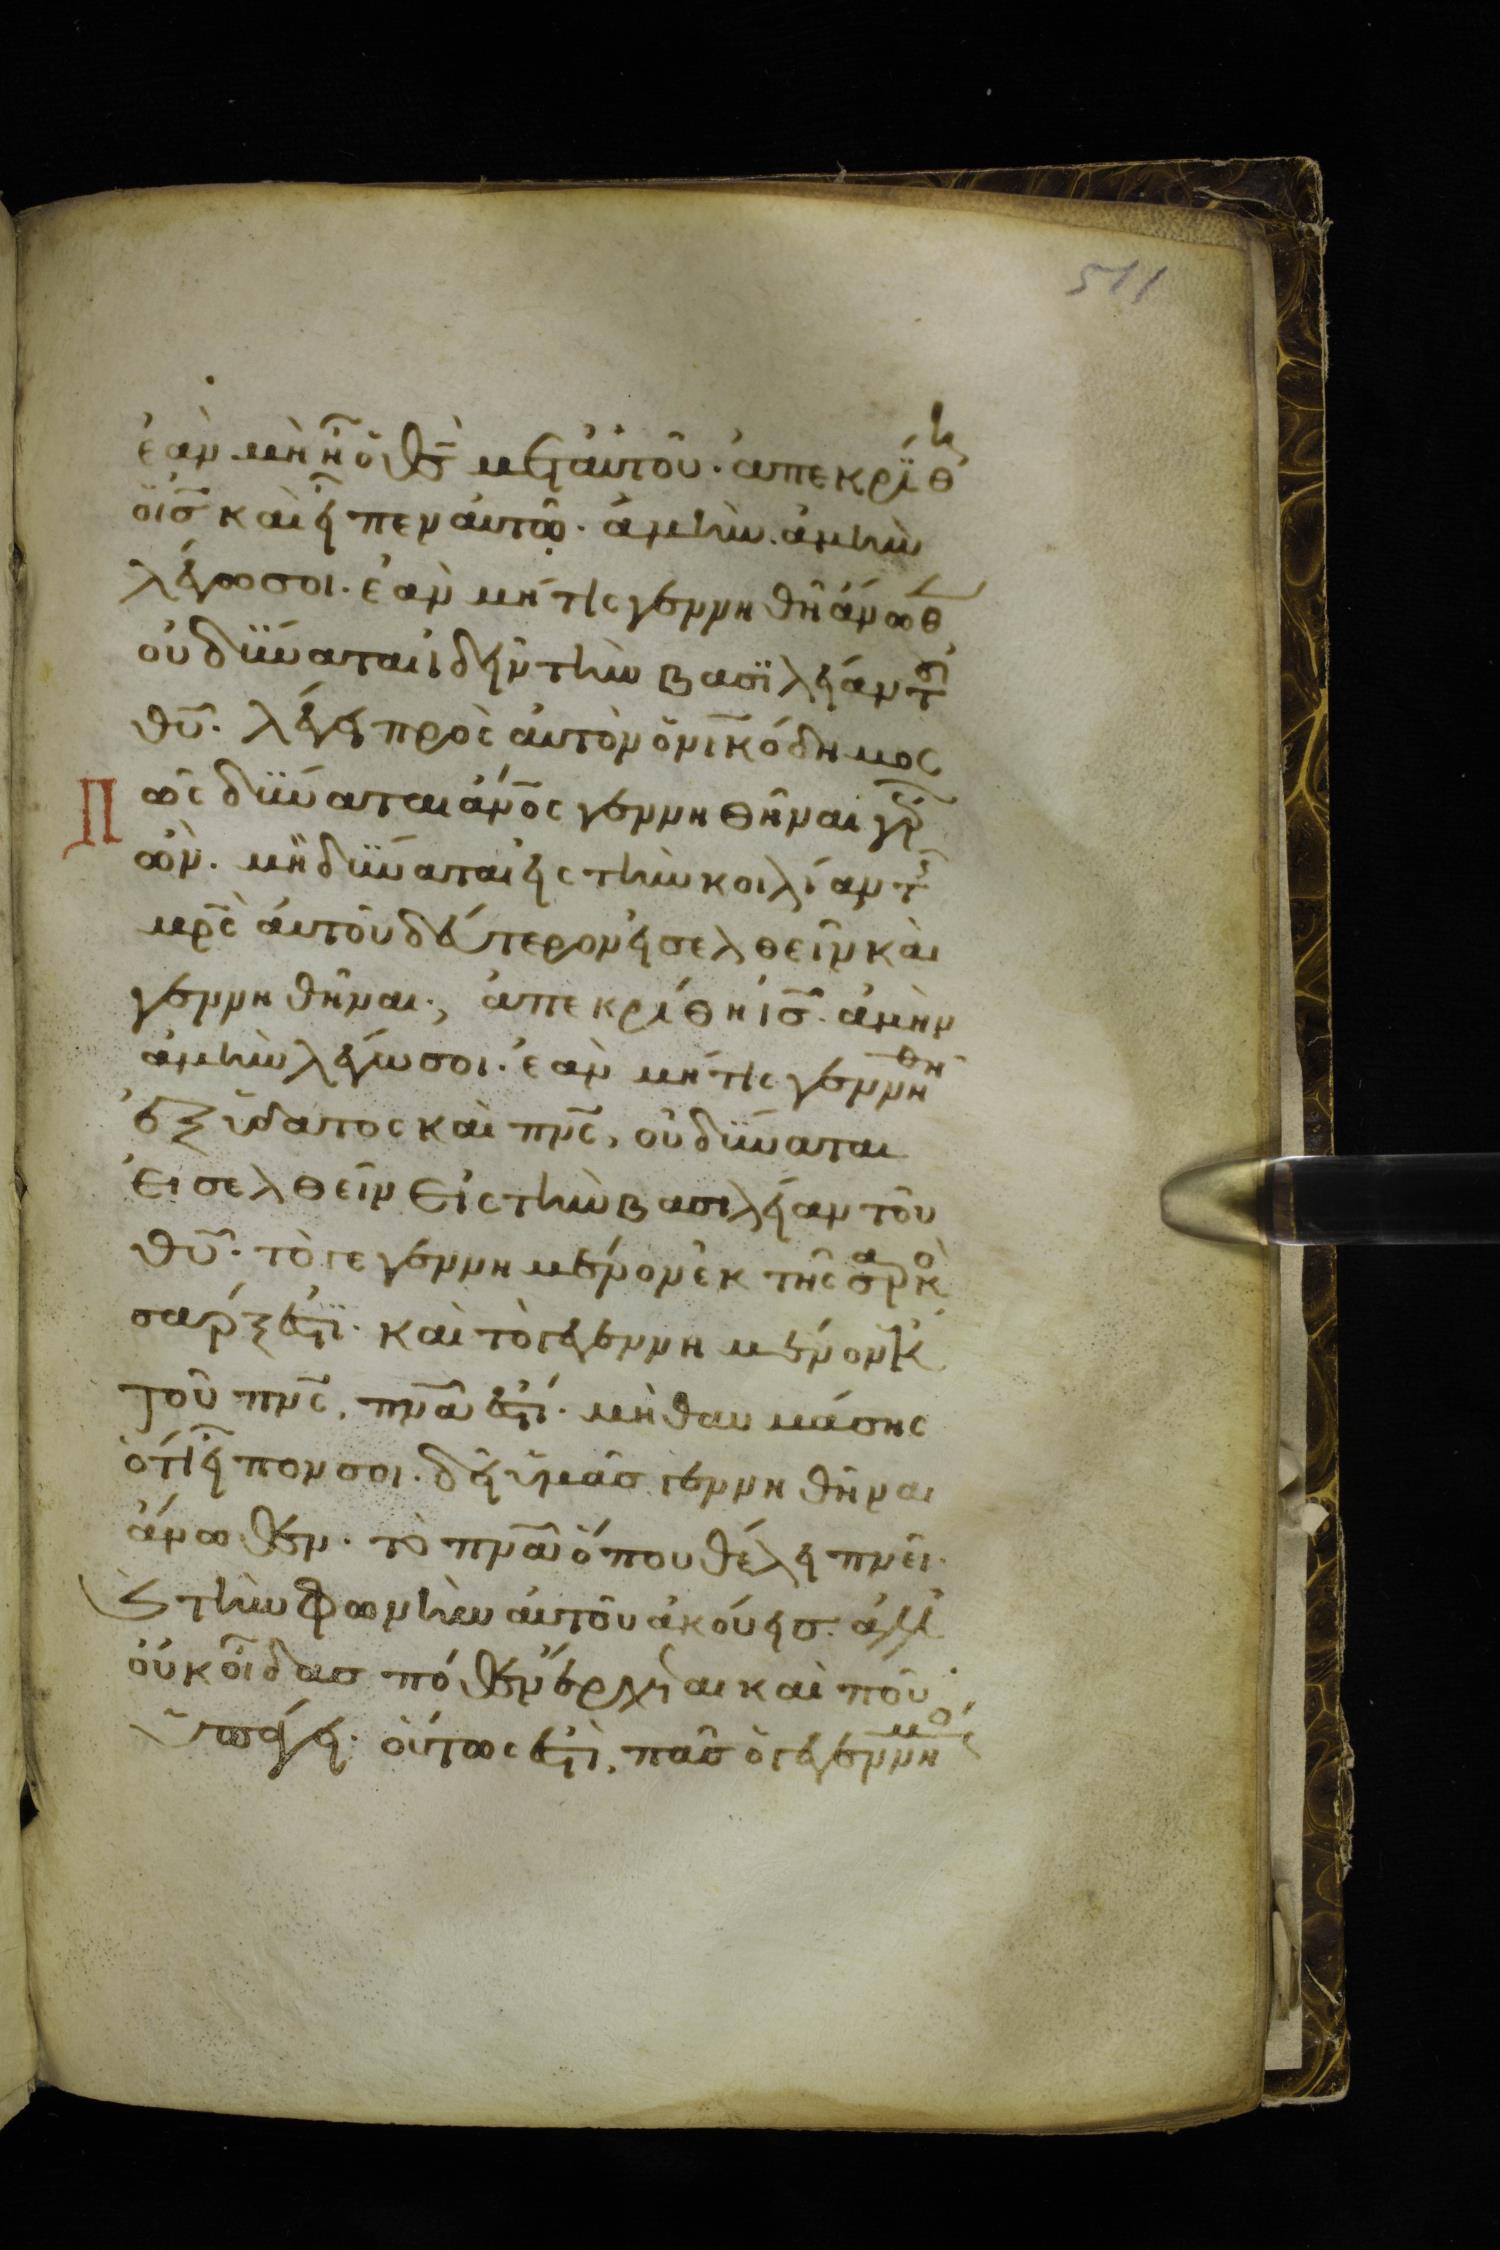 511
ἐὰν μὴ ἦ ὁ θς μετ αὐτοῦ· ἀπεκρίθη
ὁ ις καὶ εἶπεν αὐτῶ· ἀμὴν ἀμὴν
λέγω σοι· ἐὰν μή τις γεννηθῆ ἄνωθ
οὐ δύναται ἰδεῖν τὴν βασιλείαν τοῦ
θυ· λέγει πρὸς αὐτὸν ὁ νικόδημος
Πῶς δύναται ἄνος γεννηθῆναι γέρ
ων· μὴ δύναται εἰς τὴν κοιλίαν τῆς
μρς αὐτοῦ δεύτερον εἰσελθεῖν καὶ
γεννηθῆναι·, ἀπεκρίθη ις· ἀμὴν
ἀμὴν λέγω σοι· ἐὰν μή τις γεννηθῆ
ἐξ ὕδατος καὶ πνς, οὐ δύναται
εἰσελθεῖν εἰς τὴν βασιλείαν τοῦ
θυ· τὸ γεγεννημένον ἐκ τῆς σαρκὸ
σάρξ ἐστϊ· καὶ τὸ γεγεννημένον ἐκ
τοῦ πνς, πνα ἐστι· μὴ θαυμάσης
ὅτι εἶπον σοι· δεῖ ὑμᾶς γεννηθῆναι
ἄνωθεν· τὸ πνα ὅπου θέλει πνεῖ·
ϗ τὴν φωνὴν αὐτοῦ ἀκούεις· ἀλλ
οὐκ οἶδας πόθεν ἔρχεται καὶ ποῦ
ὑπάγει· οὕτως ἐστὶ, πᾶς ὁ γεγεννημένος